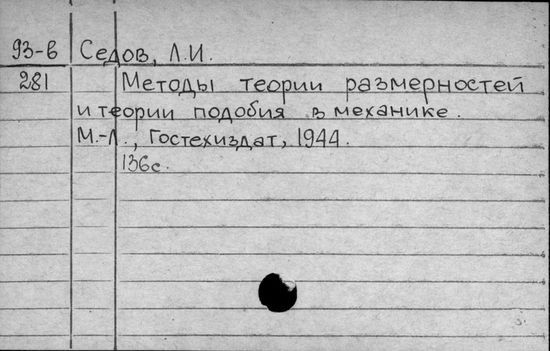 93-в Седов, Л.И.
281 Методы теории размерностей
и теории подобия в механике.
М.-Л., Гостехиздат, 1944.
136с.